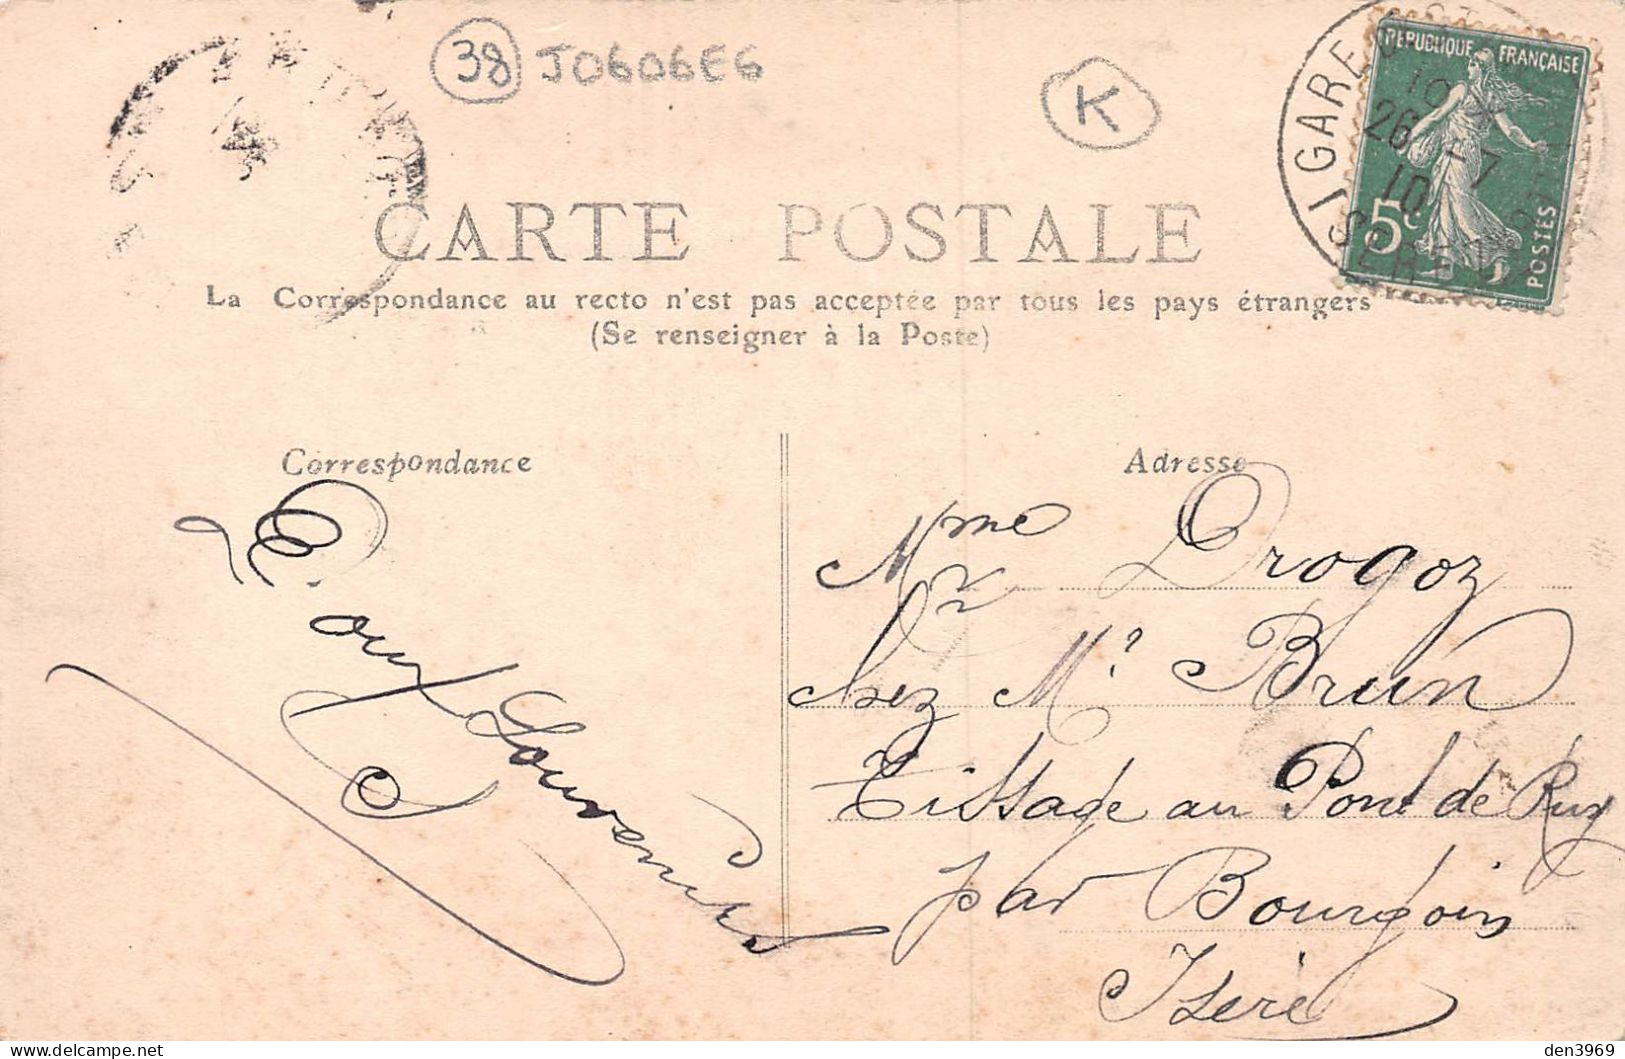 38 J0606E6
K
RÉPUBLIQUE FRANÇAISE
10
26 - 7
10
GARE
5c
POSTES
CARTE POSTALE
La Correspondance au recto n'est pas acceptée par tous les pays étrangers
(Se renseigner à la Poste)
Correspondance
Souvenirs
Adresse
Mme Drogoz
chez Mr Brun
Tissage au Pont de Ruy
par Bourgoin
Isère
den3969